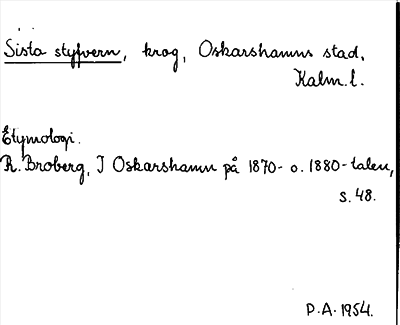 Sista styfvern, krog, Oskarshamns stad,
Kalm. l.
Etymologi.
R. Broberg, I Oskarshamn på 1870- o. 1880-talen,
s. 48.
P.A. 1954.